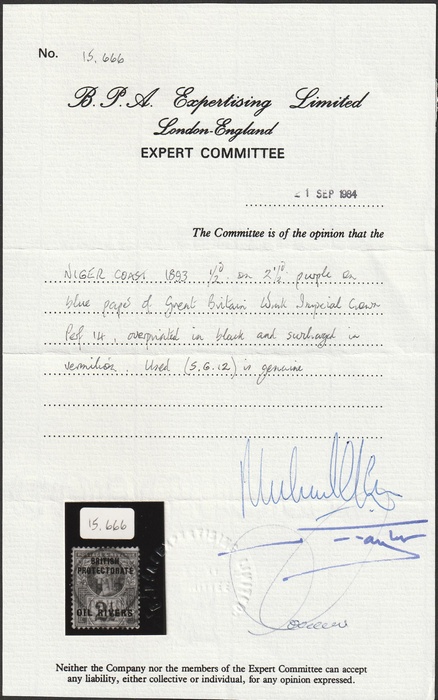 No. 15,666
B.P.A. Expertising Limited
London-England
EXPERT COMMITTEE
21 SEP 1984
The Committee is of the opinion that the
NIGER COAST 1893 ½D on 2½D purple on
blue paper of Great Britain Wmk Imperial Crown
Perf 14, overprinted in black and surcharged in
vermilion. Used (S.G.12) is genuine
15,666
BRITISH
PROTECTORATE
OIL RIVERS
Neither the Company nor the members of the Expert Committee can accept
any liability, either collective or individual, for any opinion expressed.